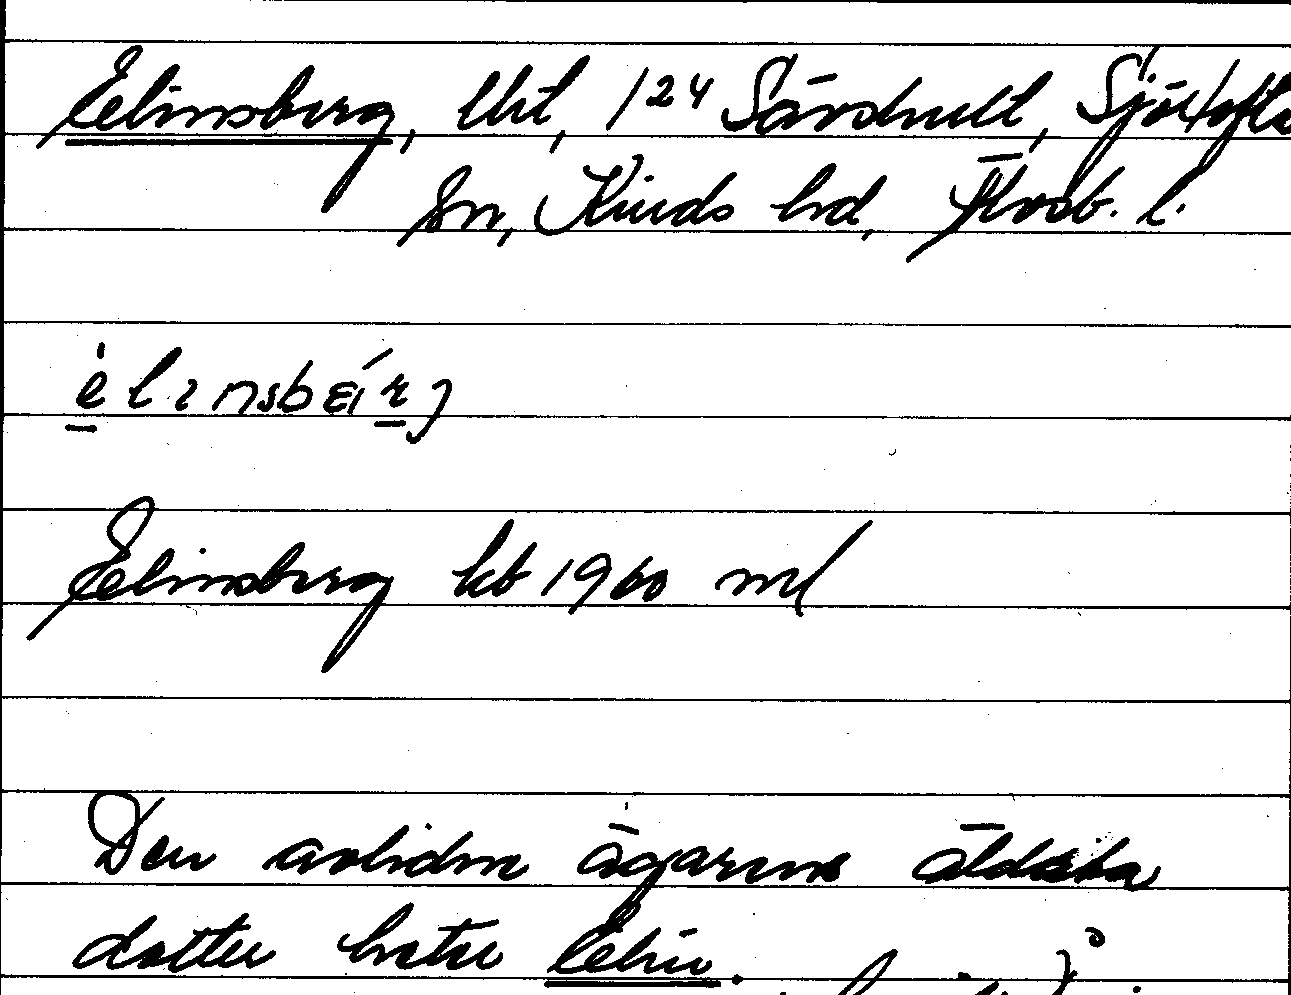 Elinsberg, lht, 1²⁴ Sävshult, Sjötofta
sn, Kinds hd, Älvsb. l.
élinsbɛ́rj
Elinsberg kb 1960 ml
Den avlidne ägarens äldsta
dotter heter Elin.